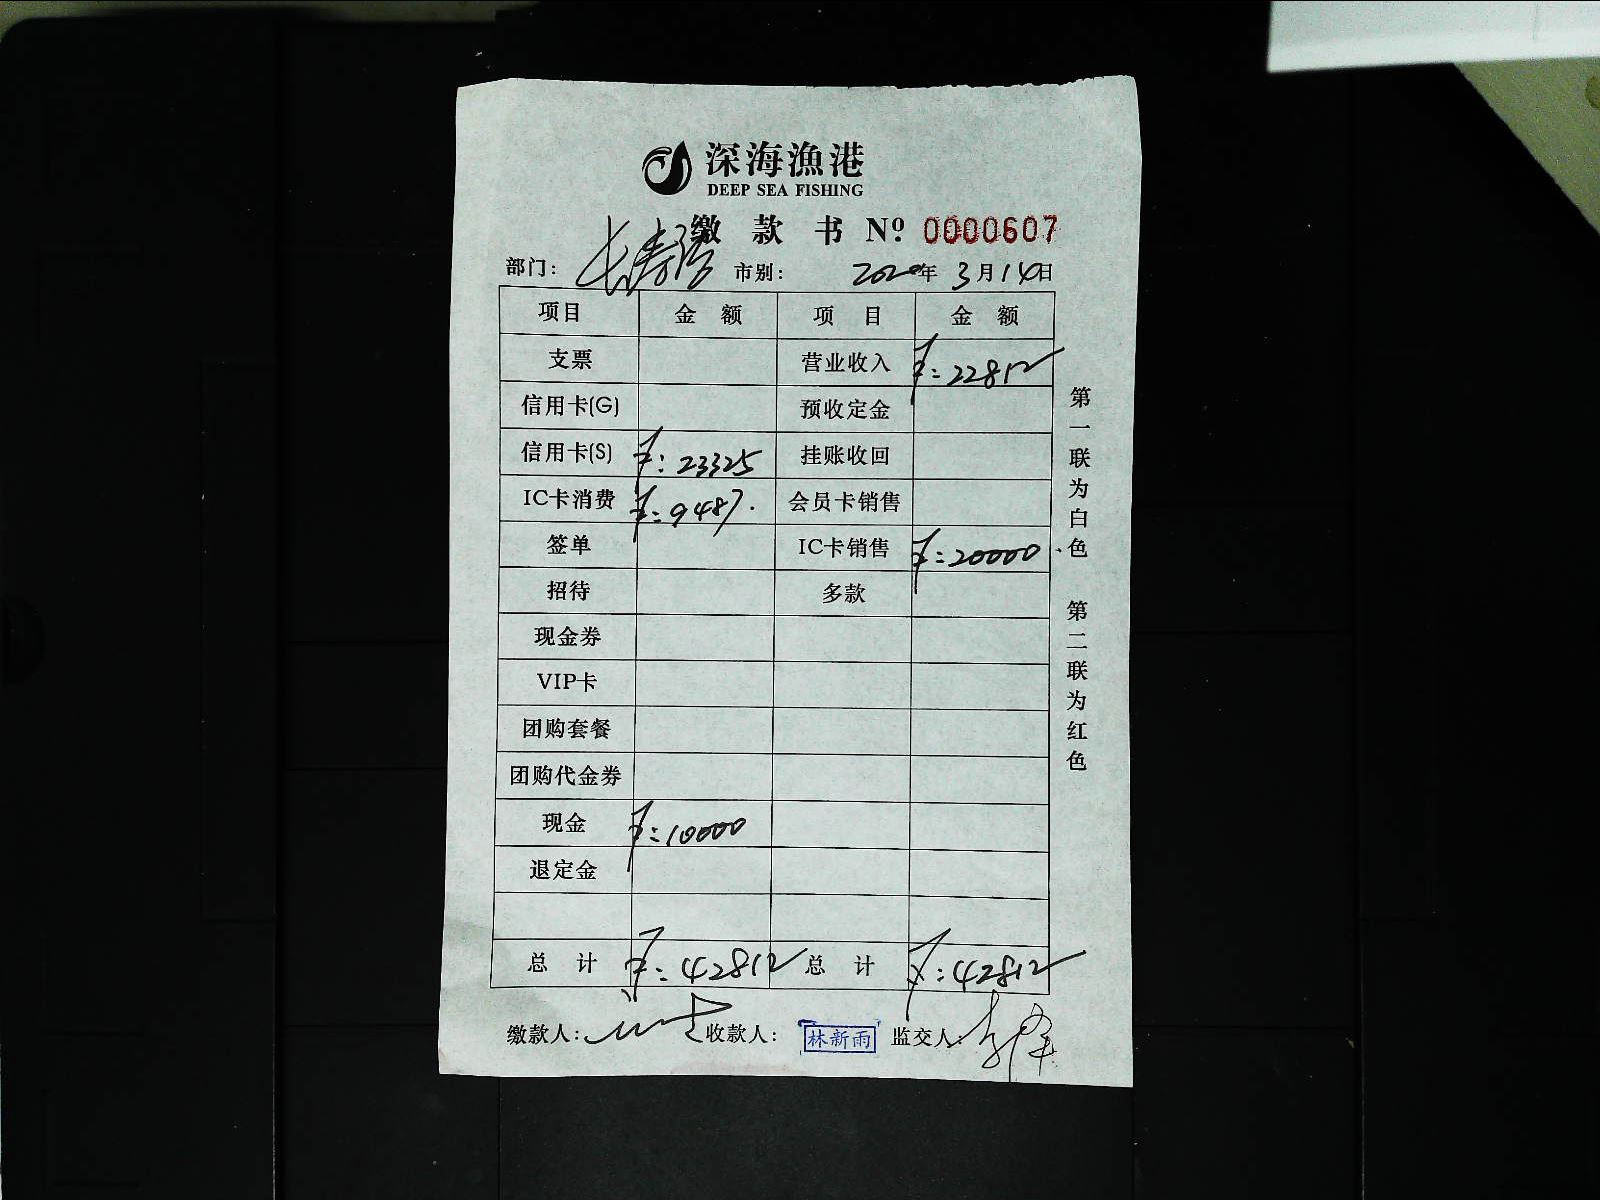 深海渔港
DEEP SEA FISHING
缴款书 Nº 0000607
部门: 长寿路 市别: 2020年3月14日
项目 金额 项目 金额
支票 营业收入 ¥:22812
信用卡(G) 预收定金
信用卡(S) ¥:23325 挂账收回
IC卡消费 ¥:9487. 会员卡销售
签单 IC卡销售 ¥:20000
招待 多款
现金券
VIP卡
团购套餐
团购代金券
现金 ¥:10000
退定金
总计 ¥:42812 总计 ¥:42812
缴款人: 收款人: 林新雨 监交人:
第一联为白色 第二联为红色